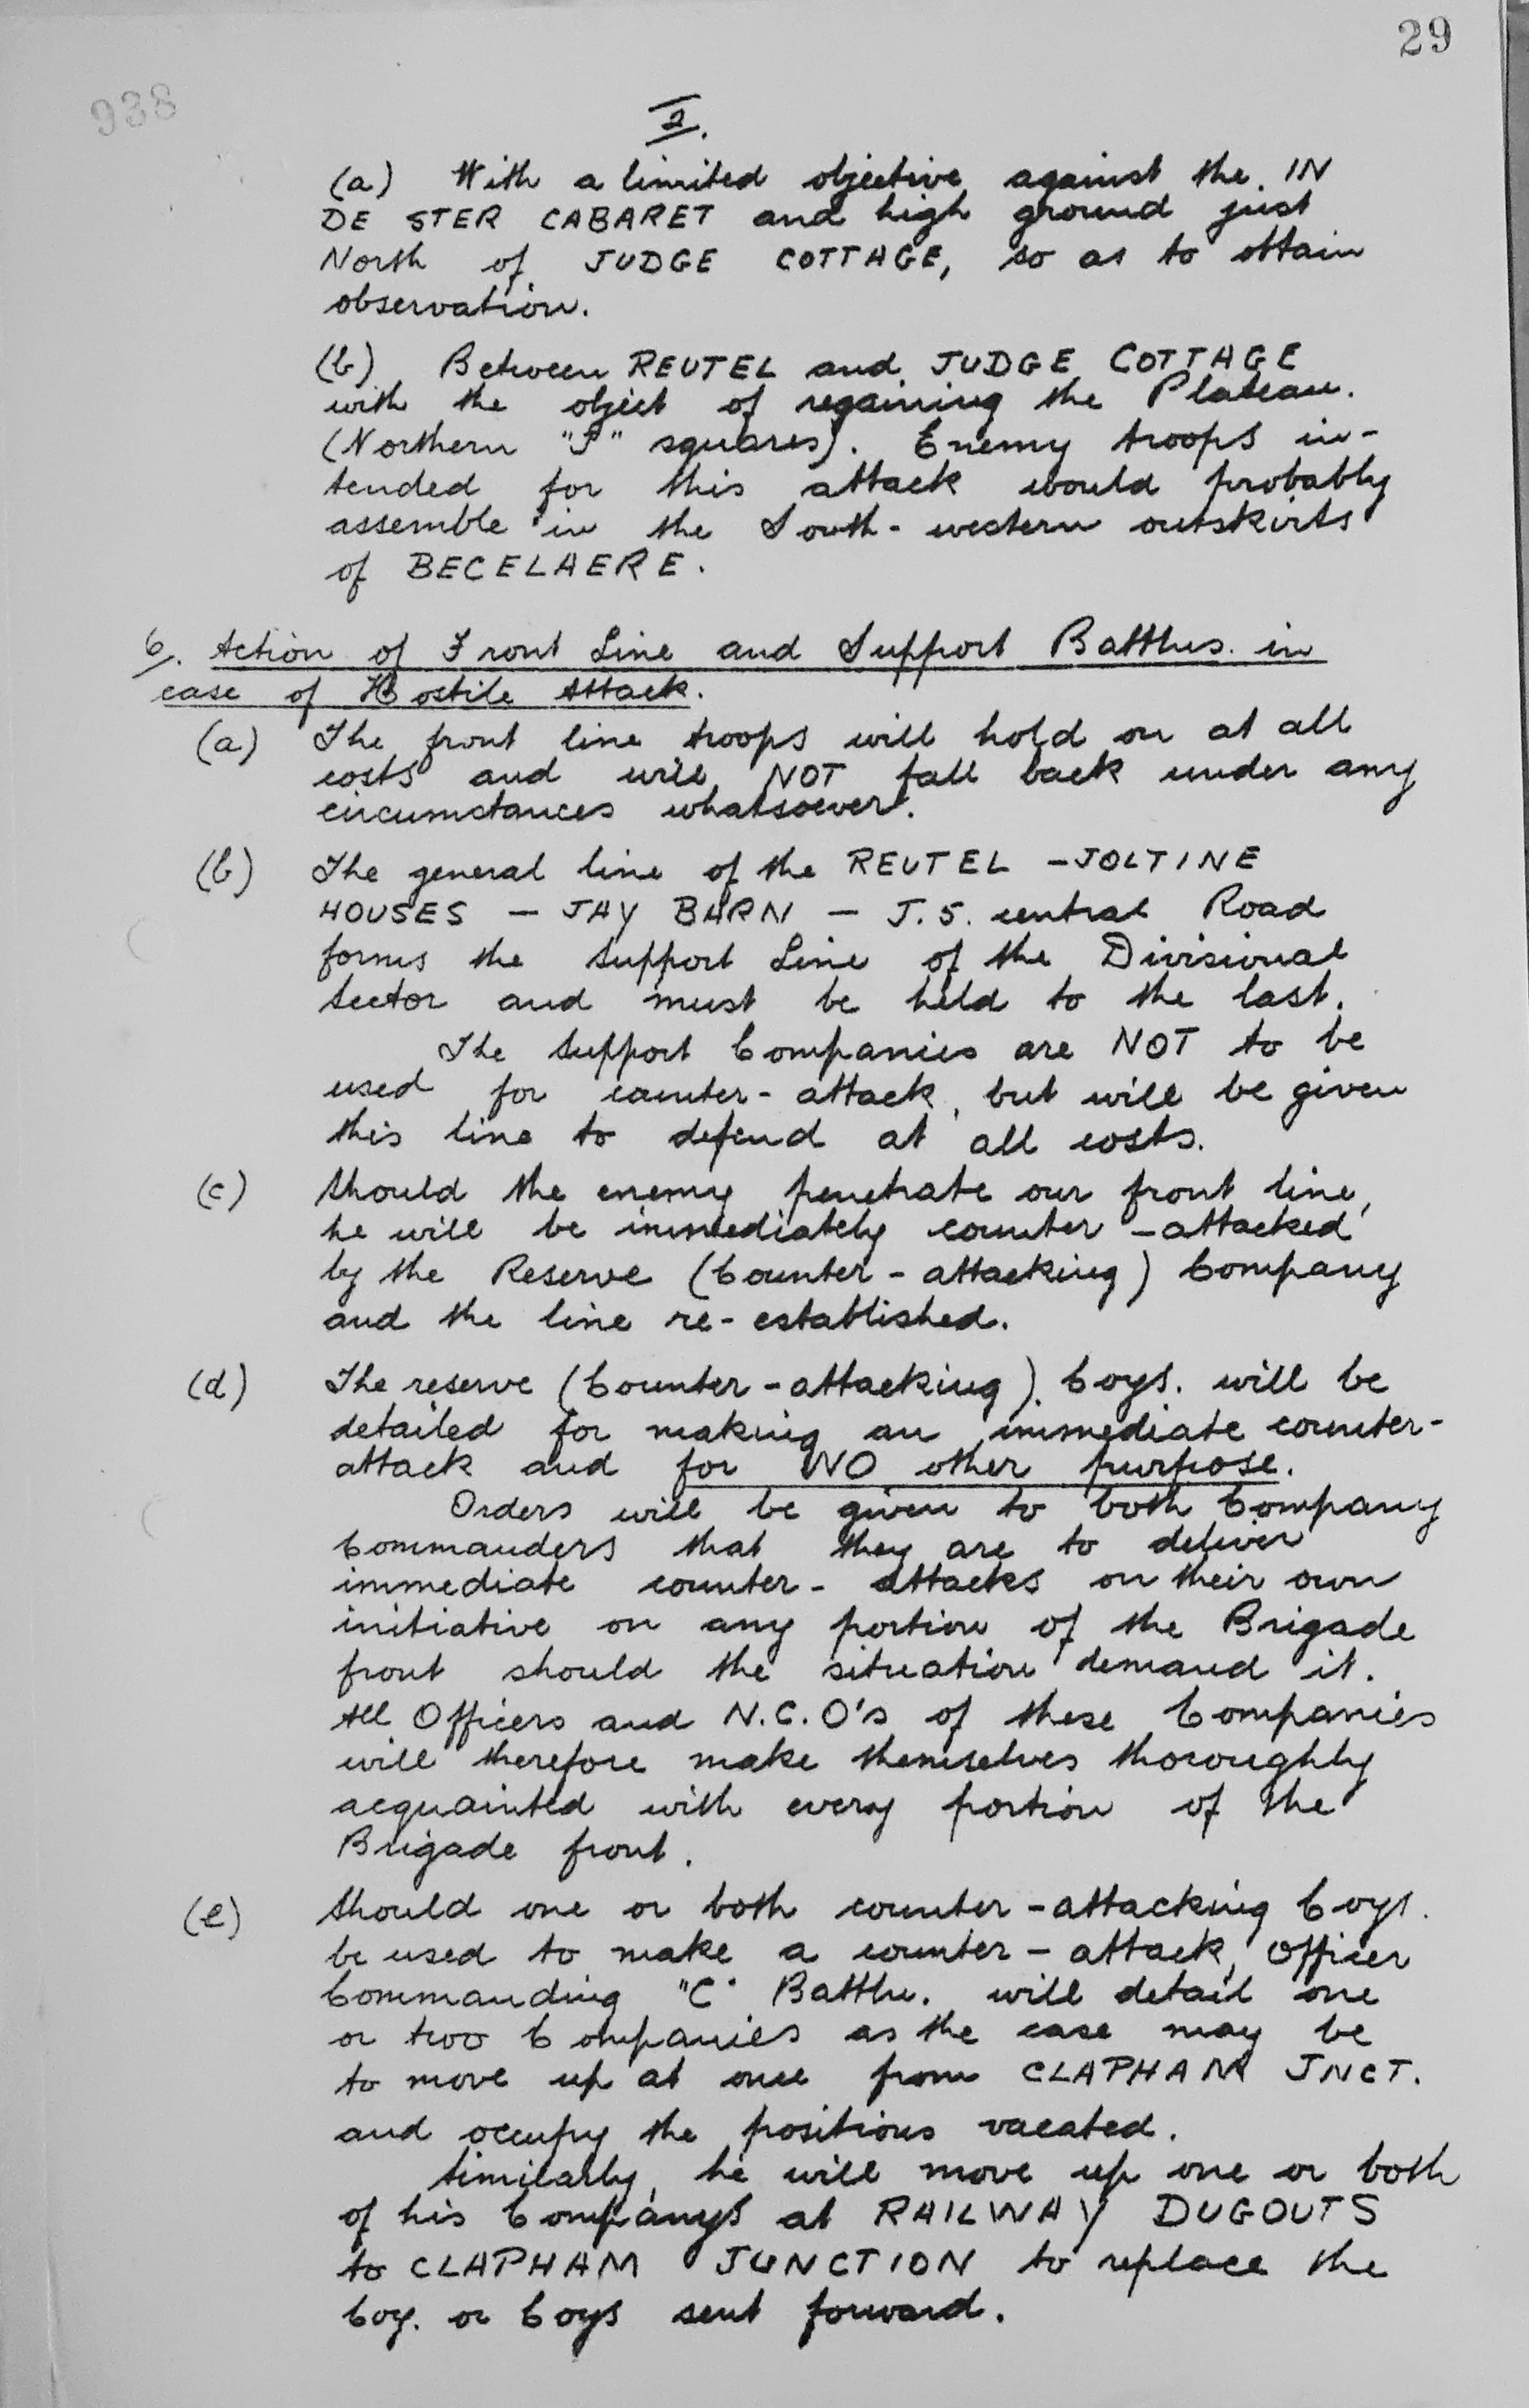 29
938
2.
(a) With a limited objective against the IN
DE STER CABARET and high ground just
North of JUDGE COTTAGE, so as to obtain
observation.
(b) Between REUTEL and JUDGE COTTAGE
with the object of regaining the Plateau.
(Northern "J" squares). Enemy troops in-
tended for this attack would probably
assemble in the South-western outskirts
of BECELAERE.
6. Action of Front Line and Support Batthns. in
case of Hostile Attack.
(a) The front line troops will hold on at all
costs and will NOT fall back under any
circumstances whatsoever.
(b) The general line of the REUTEL - JOLTINE
HOUSES - JAY BARN - J.5. central Road
forms the Support Line of the Divisional
Sector and must be held to the last.
The Support Companies are NOT to be
used for counter-attack, but will be given
this line to defend at all costs.
(c) Should the enemy penetrate our front line,
he will be immediately counter-attacked
by the Reserve (Counter-attacking) Company
and the line re-established.
(d) The reserve (Counter-attacking). Coys. will be
detailed for making an immediate counter-
attack and for NO other purpose.
Orders will be given to both Company
Commanders that they are to deliver
immediate counter-attacks on their own
initiative on any portion of the Brigade
front should the situation demand it.
All Officers and N.C.O's of these Companies
will therefore make themselves thoroughly
acquainted with every portion of the
Brigade front.
(e) Should one or both counter-attacking Coys.
be used to make a counter-attack, Officer
Commanding "C" Batthn. will detail one
or two Companies as the case may be
to move up at once from CLAPHAM JNCT.
and occupy the positions vacated.
Similarly, he will move up one or both
of his Companys at RAILWAY DUGOUTS
to CLAPHAM JUNCTION to replace the
Coy. or Coys sent forward.